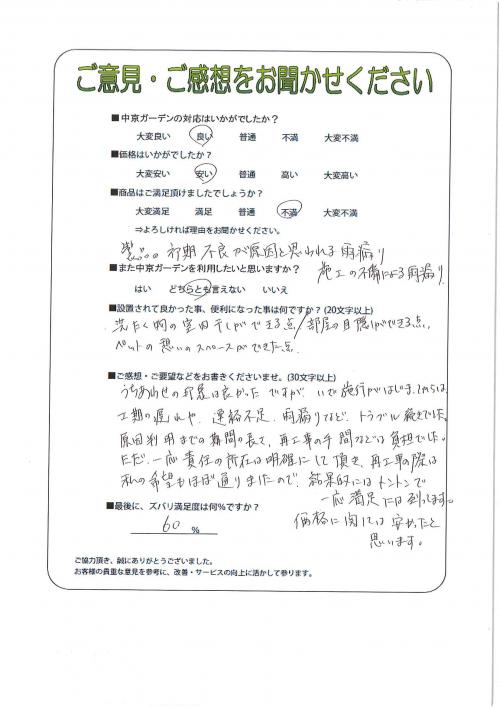 ご意見・ご感想をお聞かせください
■中京ガーデンの対応はいかがでしたか？
大変良い 良い 普通 不満 大変不満
■価格はいかがでしたか？
大変安い 安い 普通 高い 大変高い
■商品はご満足頂けましたでしょうか？
大変満足 満足 普通 不満 大変不満
⇒よろしければ理由をお聞かせください。
初期不良が原因と思われる雨漏り
施工の不備による雨漏り
■また中京ガーデンを利用したいと思いますか？
はい どちらとも言えない いいえ
■設置されて良かった事、便利になった事は何ですか？(20文字以上)
洗たく物の室内干しができる点/部屋の目隠しができる点、
ペットの憩いのスペースができた点
■ご感想・ご要望などをお書きくださいませ。(30文字以上)
うちあわせの印象は良かったですが、いざ施行がはじまってからは
工期の遅れや、連絡不足、雨漏りなど、トラブル続きでした。
原因判明までの期間の長さ、再工事の手間などは負担でした。
ただ、一応責任の所在は明確にして頂き、再工事の際は
私の希望もほぼ通りましたので、結果的にはトントンで
一応満足には到ります。
価格に関しては安かったと
思います。
■最後に、ズバリ満足度は何％ですか？
60 %
ご協力頂き、誠にありがとうございました。
お客様の貴重な意見を参考に、改善・サービスの向上に活かして参ります。